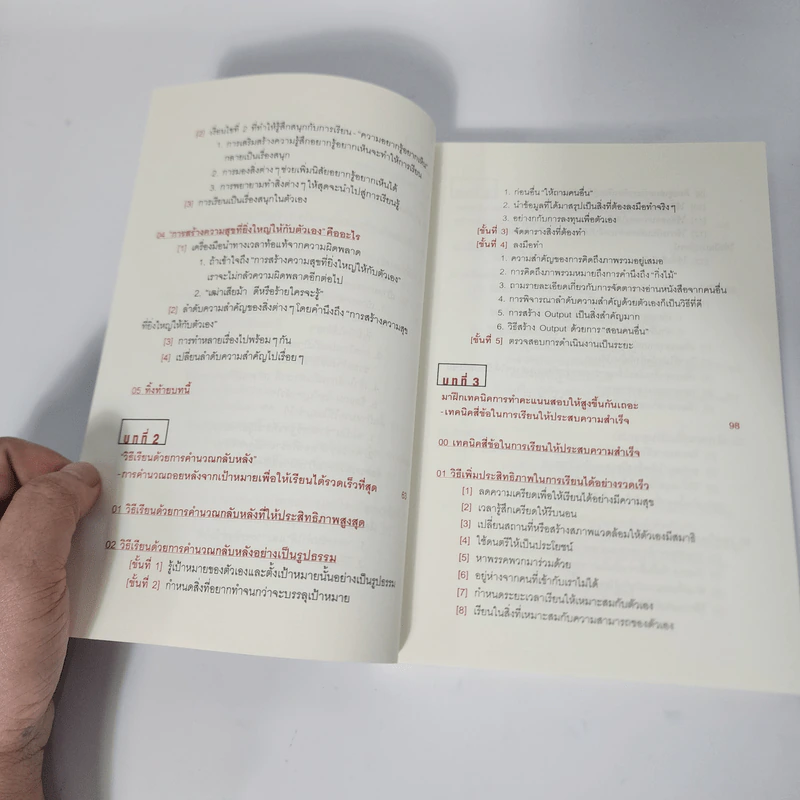 [2] เงื่อนไขที่ 2 ที่ทำให้รู้สึกสนุกกับการเรียน - "ความอยากรู้อยากเห็น"
1. การเสริมสร้างความรู้สึกอยากรู้อยากเห็นจะทำให้การเรียน
กลายเป็นเรื่องสนุก
2. การมองสิ่งต่าง ๆ ช่วยเพิ่มนิสัยอยากรู้อยากเห็นได้
3. การพยายามทำสิ่งต่าง ๆ ให้สุดจะนำไปสู่การเรียนรู้
[3] การเรียนเป็นเรื่องสนุกในตัวเอง
04 "การสร้างความสุขที่ยิ่งใหญ่ให้กับตัวเอง" คืออะไร
[1] เครื่องมือนำทางเวลาท้อแท้จากความผิดพลาด
1. ถ้าเข้าใจถึง "การสร้างความสุขที่ยิ่งใหญ่ให้กับตัวเอง"
เราจะไม่กลัวความผิดพลาดอีกต่อไป
2. "เฒ่าเสียม้า ดีหรือร้ายใครจะรู้"
[2] ลำดับความสำคัญของสิ่งต่าง ๆ โดยคำนึงถึง "การสร้างความสุข
ที่ยิ่งใหญ่ให้กับตัวเอง"
[3] การทำหลายเรื่องไปพร้อม ๆ กัน
[4] เปลี่ยนลำดับความสำคัญไปเรื่อย ๆ
05 ทิ้งท้ายบทนี้
บทที่ 2
"วิธีเรียนด้วยการคำนวณกลับหลัง"
-การคำนวณถอยหลังจากเป้าหมายเพื่อให้เรียนได้รวดเร็วที่สุด
63
01 วิธีเรียนด้วยการคำนวณกลับหลังที่ให้ประสิทธิภาพสูงสุด
02 วิธีเรียนด้วยการคำนวณกลับหลังอย่างเป็นรูปธรรม
[ขั้นที่ 1] รู้เป้าหมายของตัวเองและตั้งเป้าหมายนั้นอย่างเป็นรูปธรรม
[ขั้นที่ 2] กำหนดสิ่งที่อยากทำจนกว่าจะบรรลุเป้าหมาย
1. ก่อนอื่น "ให้ถามคนอื่น"
2. นำข้อมูลที่ได้มาสรุปเป็นสิ่งที่ต้องลงมือทำจริง ๆ
3. อย่างกกับการลงทุนเพื่อตัวเอง
[ขั้นที่ 3] จัดตารางสิ่งที่ต้องทำ
[ขั้นที่ 4] ลงมือทำ
1. ความสำคัญของการคิดถึงภาพรวมอยู่เสมอ
2. การคิดถึงภาพรวมหมายถึงการคำนึงถึง "กิ่งไม้"
3. ถามรายละเอียดเกี่ยวกับการจัดตารางอ่านหนังสือจากคนอื่น
4. การพิจารณาลำดับความสำคัญด้วยตัวเองก็เป็นวิธีที่ดี
5. การสร้าง Output เป็นสิ่งสำคัญมาก
6. วิธีสร้าง Output ด้วยการ "สอนคนอื่น"
[ขั้นที่ 5] ตรวจสอบการดำเนินงานเป็นระยะ
บทที่ 3
มาฝึกเทคนิคการทำคะแนนสอบให้สูงขึ้นกันเถอะ
-เทคนิคสี่ข้อในการเรียนให้ประสบความสำเร็จ
98
00 เทคนิคสี่ข้อในการเรียนให้ประสบความสำเร็จ
01 วิธีเพิ่มประสิทธิภาพในการเรียนได้อย่างรวดเร็ว
[1] ลดความเครียดเพื่อให้เรียนได้อย่างมีความสุข
[2] เวลารู้สึกเครียดให้รีบนอน
[3] เปลี่ยนสถานที่หรือสร้างสภาพแวดล้อมให้ตัวเองมีสมาธิ
[4] ใช้ดนตรีให้เป็นประโยชน์
[5] หาพรรคพวกมาร่วมด้วย
[6] อยู่ห่างจากคนที่เข้ากับเราไม่ได้
[7] กำหนดระยะเวลาเรียนให้เหมาะสมกับตัวเอง
[8] เรียนในสิ่งที่เหมาะสมกับความสามารถของตัวเอง